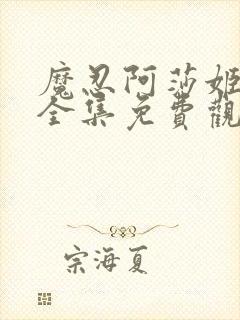 魔忍阿莎姬
全集免費觀
宗海夏